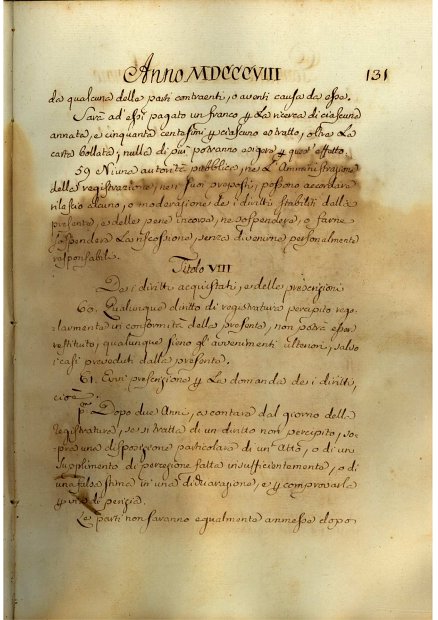 Anno MDCCCVIII 131
da qualcuna delle parti contraenti, o aventi causa da esse.
Sarà ad essi pagato un franco p la ricerca di ciascuna
annata, e cinquanta centesimi p ciascuno estratto, oltre la
carta bollata; nulla di più potranno esigere p quest'effetto.
59 Niuna autorità pubblica, ne l'Amministrazione
della registrazione, ne i suoi preposti, possono accordare
rilascio alcuno, o moderazione de i diritti stabiliti dalla
presente, e delle pene incorse, ne sospendere, o farne
sospendere la riscossione, senza divenirne personalmente
responsabili.
Titolo VIII
Dei diritti acquistati, e delle prescrizioni
60. Qualunque diritto di registratura percepito rego-
larmente in conformità della presente, non potrà esser
restituito, qualunque sieno gl'avvenimenti ulteriori, salvo
i casi preveduti dalla presente.
61. Evvi prescrizione p la domanda dei diritti,
cioè
P.º Dopo due Anni, a contare dal giorno della
registratura, se si tratta di un diritto non percepito, so-
pra una disposizione particolare di un Atto, o di un
supplimento di percezione fatta insufficientemente, o di
una falsa stima in una dichiarazione, e p comprovarla
p via di perizia.
Le parti non saranno egualmente ammesse dopo